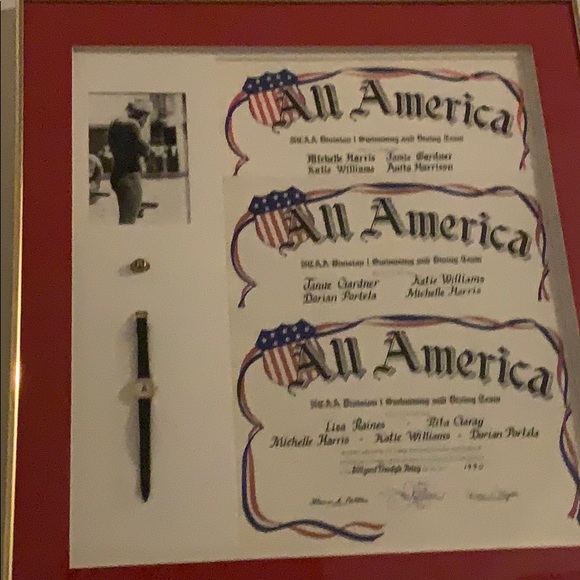 All America
N.C.A.A. Division I Swimming and Diving Team
Michelle Harris Jamie Gardner
Katie Williams Anita Harrison
All America
N.C.A.A. Division I Swimming and Diving Team
Jamie Gardner Katie Williams
Dorian Portela Michelle Harris
All America
N.C.A.A. Division I Swimming and Diving Team
Lisa Raines · Rita Garay
Michelle Harris · Katie Williams · Dorian Portela
Freestyle Relay 1990